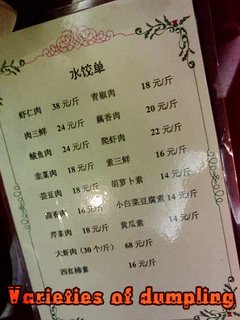 水饺单
虾仁肉 38 元/斤 青椒肉 18 元/斤
肉三鲜 24 元/斤 藕香肉 20 元/斤
鲅鱼肉 24 元/斤 爬虾肉 22 元/斤
韭菜肉 18 元/斤 素三鲜 16 元/斤
芸豆肉 18 元/斤 胡萝卜素 14 元/斤
茴香肉 18 元/斤 小白菜豆腐素 14 元/斤
芹菜肉 18 元/斤 黄瓜素 14 元/斤
大虾肉(30 个/斤) 68 元/斤
西红柿素 16 元/斤
Varieties of dumpling